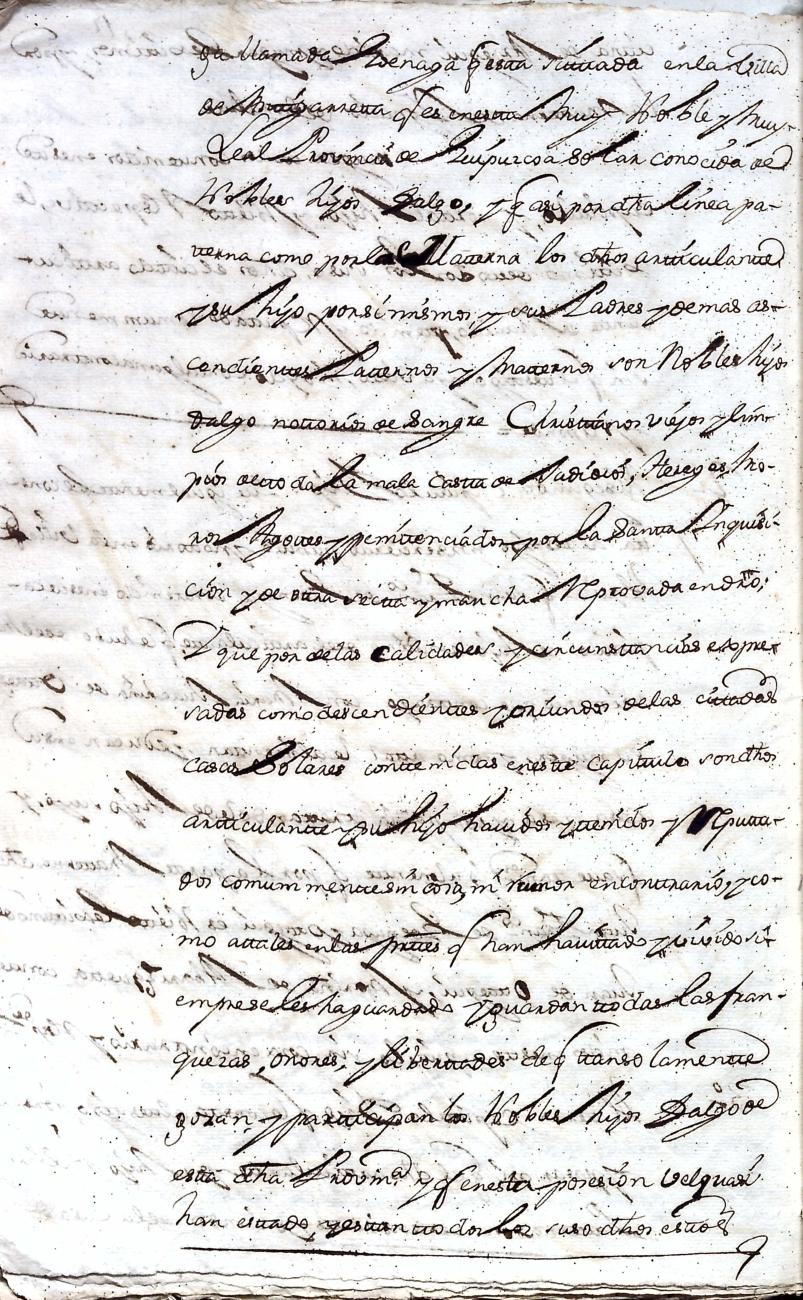 ga llamada Loenaga q̃ esta situada en la Villa
de Mutiparreta q̃ es en esta Muy Noble y Muy
Leal Provincia de Guipuzcoa Solar conocida de
Nobles hijos Dalgo, y q̃ asi por dh̃a linea pa-
terna como por la Materna los dh̃os articulante
y su hijo por si mismos, y sus Padres y demas as-
cendientes Paternos y Maternos son Nobles hijos
dalgo nottorios de Sangre Christianos viejos y lim-
pios de toda la mala casta de Judios, Hereges, Mo-
ros Agotes y penitenciados por la Santa Inquisi-
cion y de otra secta y mancha Reprovada en dr̃o;
Y que por de las calidades y circunstancias expre-
sadas como descendientes y oriundos de las cittadas
casas Solares contenidas en este capitulo son dh̃os
articulante y su hijo havidos y tenidos y Reputta-
dos comunmente sin cosa, ni rumor en contrario, y co-
mo a ttales en las prttes q̃ han havittado y vivido si-
empre se les ha guardado y guardan ttodas las fran-
quezas, onores, y libertades de q̃ tan solamente
gozan y participan los Nobles hijos Dalgo de
esta dh̃a Provinᵃ y q̃ en esta posesion velquasi
han estado, y estan ttodos los suso dh̃os